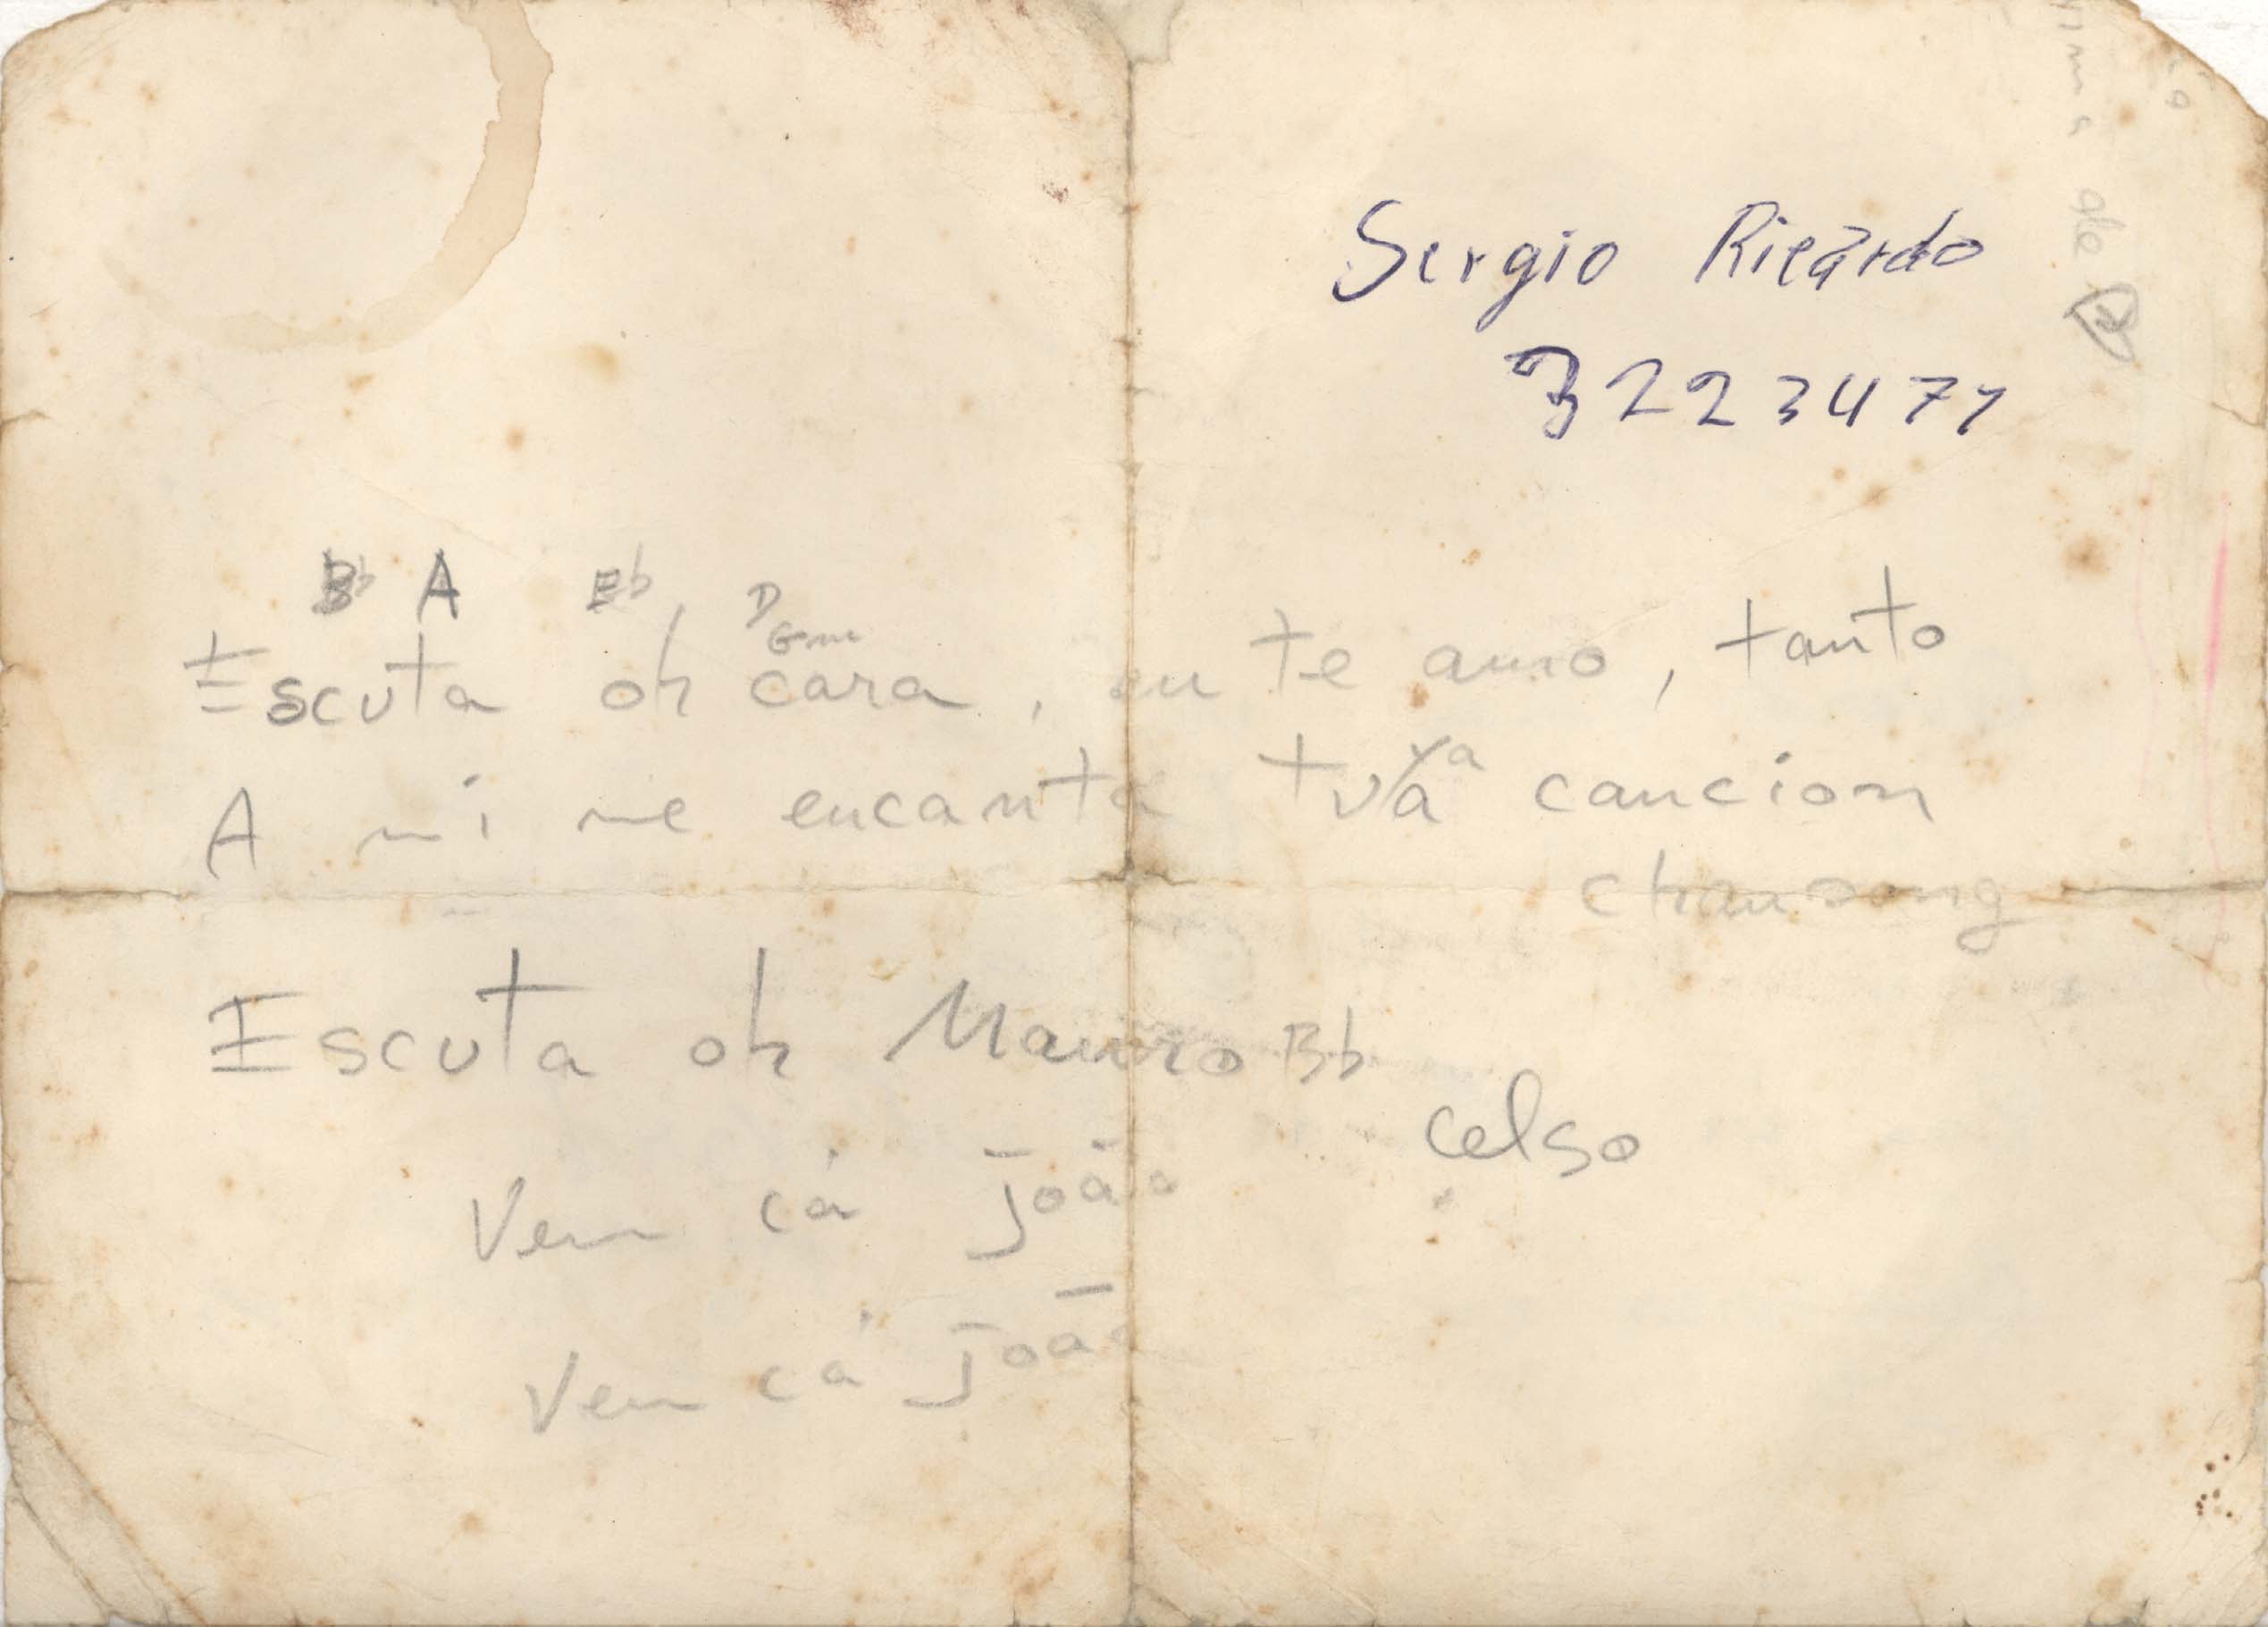 Sergio Ricardo
322347
Bb A Eb D
Gm
Escuta oh cara, eu te amo, tanto
A mi me encanta tua cancion
chansong
Escuta oh Mauro Bb
celso
Vem cá João
Vem cá João
de